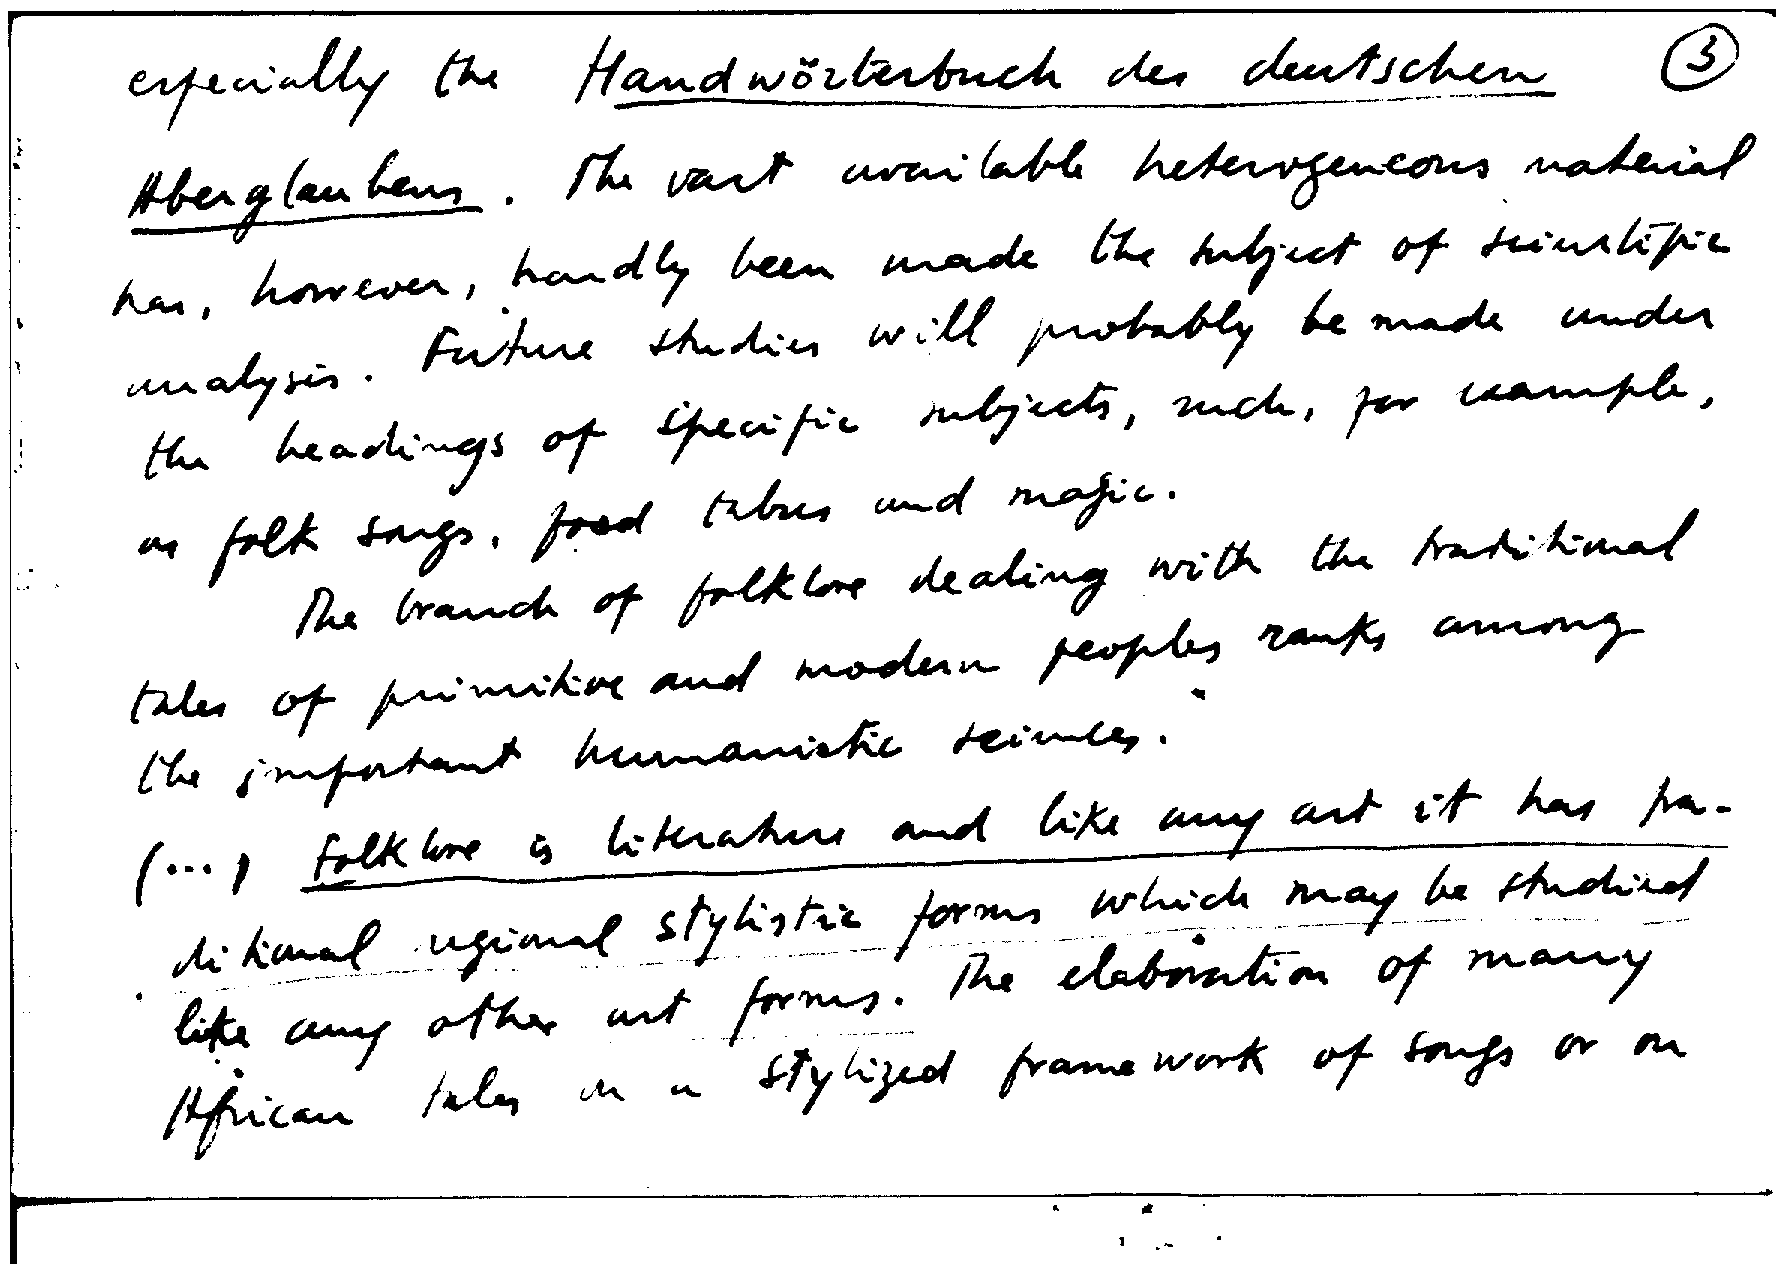 especially the Handwörterbuch des deutschen ③
Aberglaubens. The vast available heterogeneous material
has, however, hardly been made the subject of scientific
analysis. Future studies will probably be made under
the headings of specific subjects, such, for example,
as folk songs, food taboos and magic.
The branch of folklore dealing with the traditional
tales of primitive and modern peoples ranks among
the important humanistic sciences."
(...) Folklore is literature and like any art it has tra-
ditional regional stylistic forms which may be studied
like any other art forms. The elaboration of many
African tales in a stylized framework of songs or on